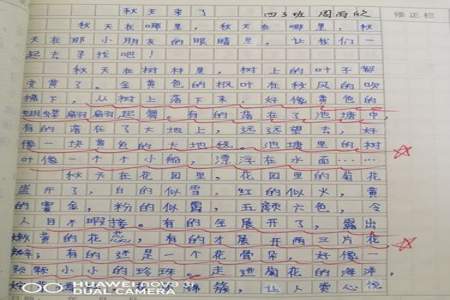 秋天来了 四3班 周雨
秋天在哪里，秋天在哪里，秋
天在那小朋友的眼睛里，让我们一
起去寻找吧！
秋天在树林里，树上的叶子都
变黄了。金黄色的枫叶在秋风的吹
拂下，从树上落下来，好像黄色的
蝴蝶翩翩起舞。有的落在了池塘中，
有的落在了大地上，远远望去，好
像一块黄色的大地毯。池塘里的树
叶像一个个小船，漂浮在水面……
秋天在花园里。花园里的菊花
盛开了，白的似雪，红的似火，黄
的霄金，粉的似霞，五颜六色，令
人目不暇接。有的全展开了，露出
嫩黄的花蕊；有的才展开两三片花
有的还是一个花骨朵，好像一
颗颗小小的珍珠。走进菊花的海洋，
让人赏心悦
HUAWEI nova 3i
DUAL CAMERA